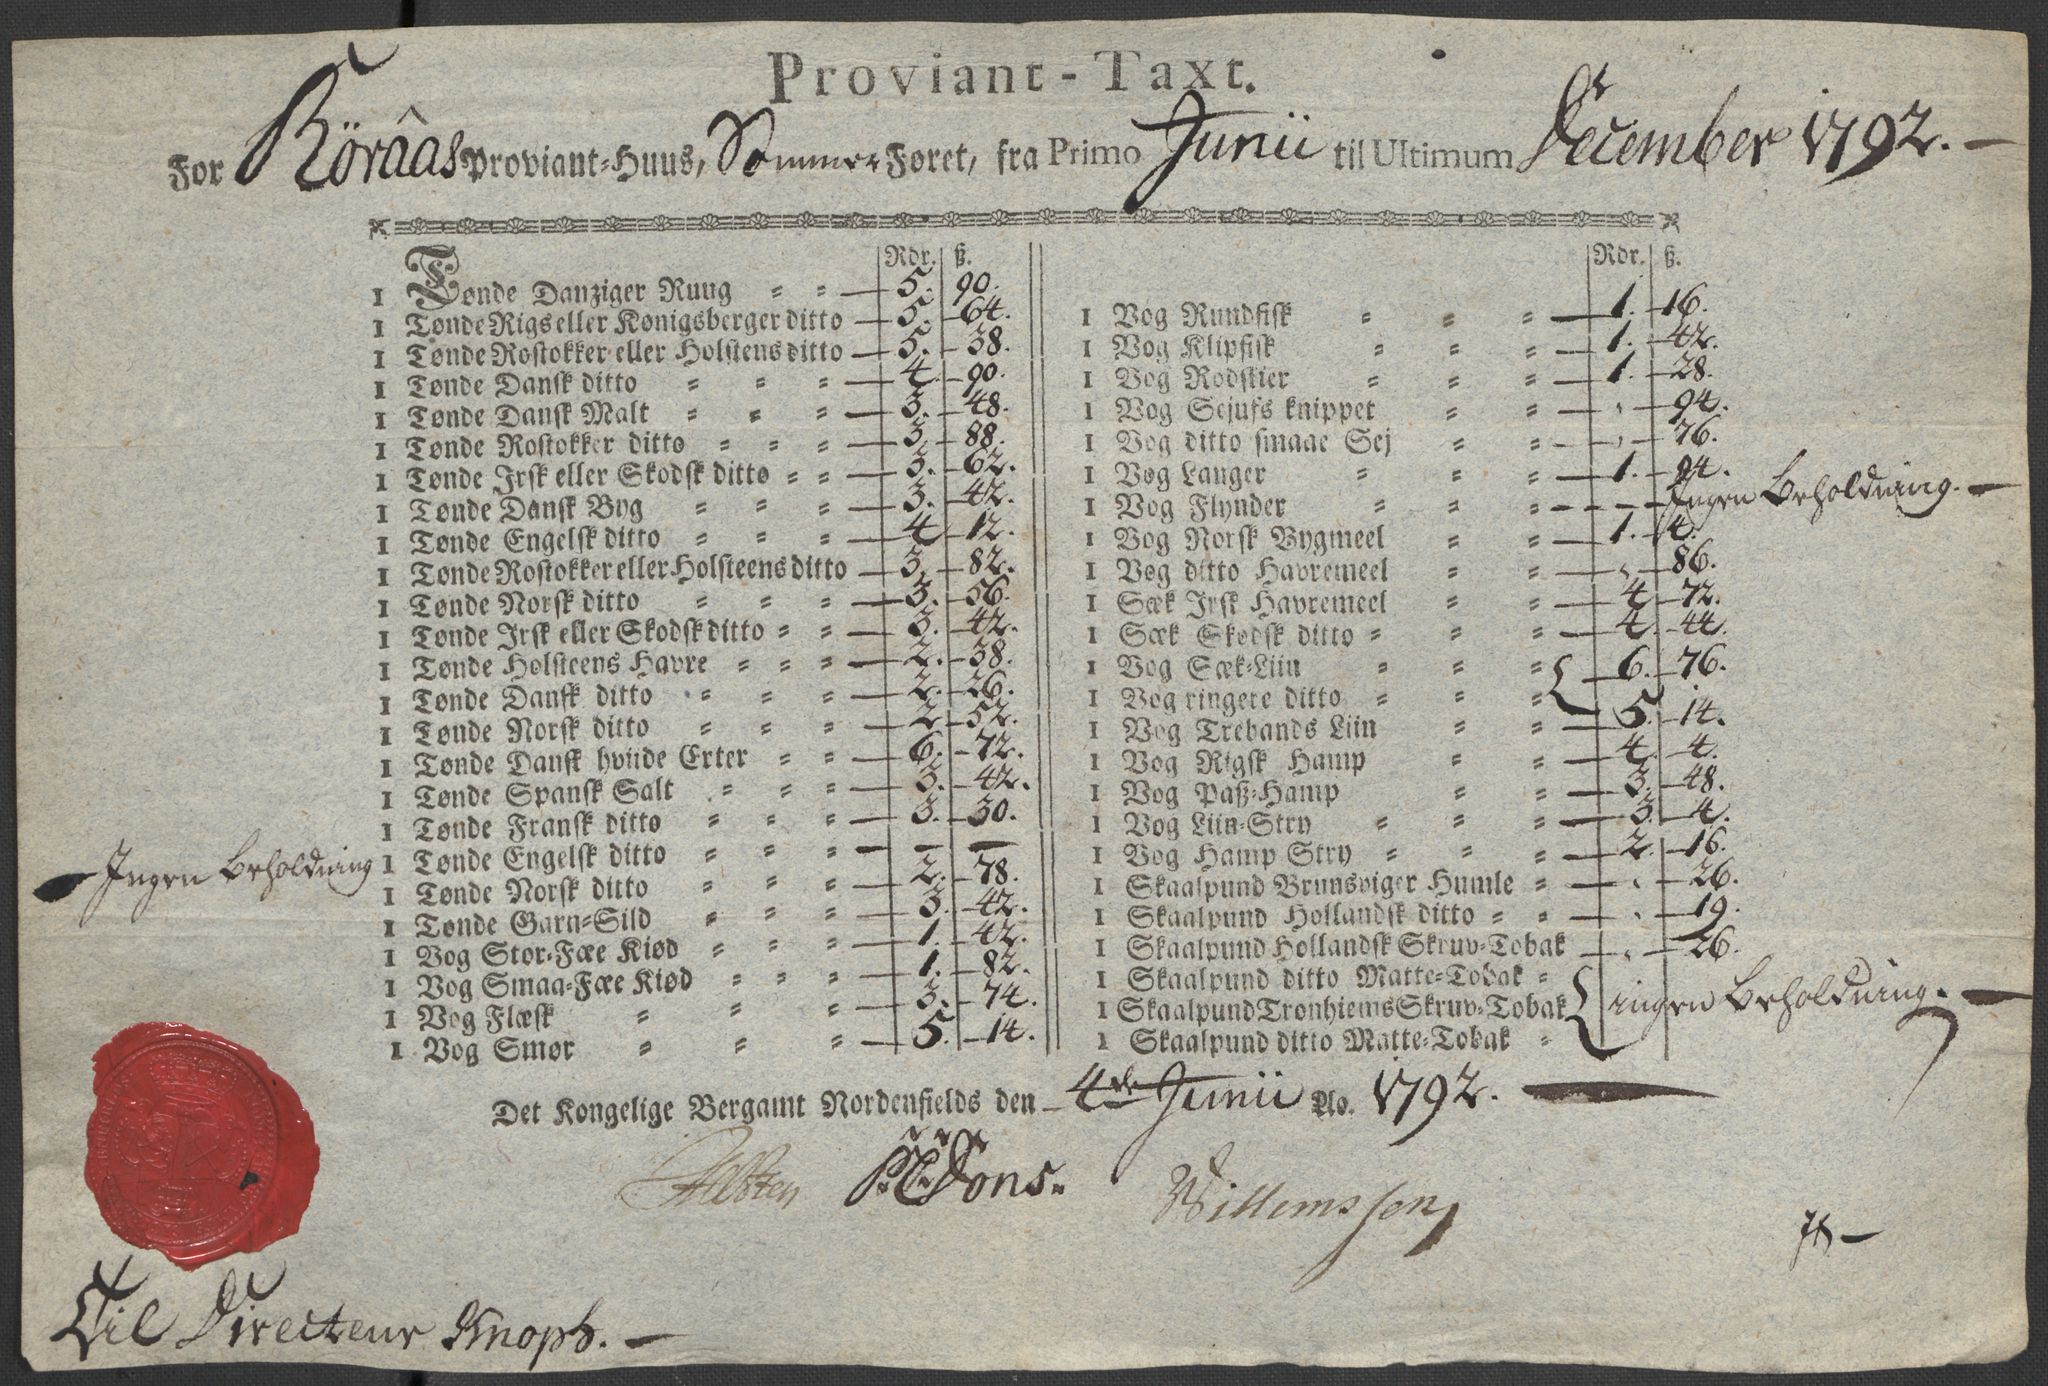 Proviant-Taxt.
For Röraas Proviant-Huus, Sommer Føret, fra Primo Junii til Ultimum December 1792.
Rdr. ß.
1 Tønde Danziger Ruug 5. 90.
1 Tønde Rigs eller Kønigsberger ditto 5. 64.
1 Tønde Rostokker eller Holstens ditto 5. 38.
1 Tønde Dansk ditto 4. 90.
1 Tønde Dansk Malt 3. 48.
1 Tønde Rostokker ditto 3. 88.
1 Tønde Irsk eller Skodsk ditto 3. 62.
1 Tønde Dansk Byg 3. 42.
1 Tønde Engelsk ditto 4 12.
1 Tønde Rostokker eller Holsteens ditto 3. 82.
1 Tønde Norsk ditto 3. 56.
1 Tønde Irsk eller Skodsk ditto 3. 42.
1 Tønde Holsteens Havre 2. 38.
1 Tønde Dansk ditto 2. 26.
1 Tønde Norsk ditto 2 52.
1 Tønde Dansk hviide Erter 6. 72.
1 Tønde Spansk Salt 3. 42.
1 Tønde Fransk ditto 3. 30.
Ingen Beholdning 1 Tønde Engelsk ditto — —
1 Tønde Norsk ditto 2. 78.
1 Tønde Garn-Sild 3. 42.
1 Vog Stor-Fæe Kiød 1. 42.
1 Vog Smaa-Fæe Kiød 1. 82.
1 Vog Flæsk 3. 74.
1 Vog Smør 5. 14.
Rdr. ß.
1 Vog Rundfisk 1. 16.
1 Vog Klipfisk 1. 42.
1 Vog Rodskier 1. 28.
1 Vog Sejufs knippet " 94.
1 Vog ditto smaae Sej " 76.
1 Vog Langer 1. 94.
1 Vog Flynder Ingen Beholdning.
1 Vog Norsk Bygmeel 1. 4.
1 Vog ditto Havremeel " 86.
1 Sæk Irsk Havremeel 4 72.
1 Sæk Skodsk ditto 4. 44.
1 Vog Sæk-Liin 6. 76.
1 Vog ringere ditto
1 Vog Trebands Liin 5. 14.
1 Vog Rigsk Hamp 4. 4.
1 Vog Paß-Hamp 3. 48.
1 Vog Liin-Stry 3. 4.
1 Vog Hamp Stry 2. 16.
1 Skaalpund Brunsviger Humle " 26.
1 Skaalpund Hollandsk ditto " 19.
1 Skaalpund Hollandsk Skruv-Tobak " 26.
1 Skaalpund ditto Matte-Tobak
1 Skaalpund Tronhiems Skruv-Tobak ingen Beholdning.
1 Skaalpund ditto Matte-Tobak
Det Kongelige Bergamt Nordenfields den 4de Junii Ao. 1792.
Dons. Willemssen
Til Directeur Knoph.